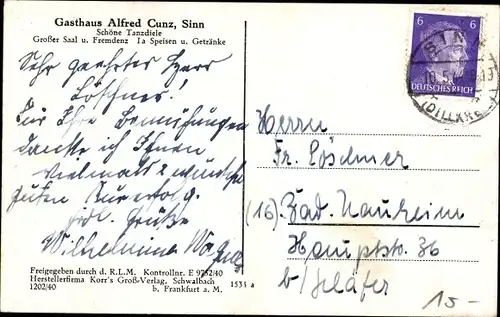 Gasthaus Alfred Cunz, Sinn
Schöne Tanzdiele
Großer Saal u. Fremdenz Ia Speisen u. Getränke
Sehr geehrter Herr
Löschner!
Für Ihre Bemühungen
danke ich Ihnen
vielmals & wünsche
guten Kurerfolg.
frdl. Grüße
Wilhelmine
Freigegeben durch d. R.L.M. Kontrollnr. E 9752/40
Herstellerfirma Korr's Groß-Verlag, Schwalbach
1202/40 b. Frankfurt a. M. 1535 a
6 6
DEUTSCHES REICH
SINN
(DILLKREIS)
Herrn
Fr. Löschner
(16) Bad Nauheim
Hauptstr. 36
b/ Schäfer
15-